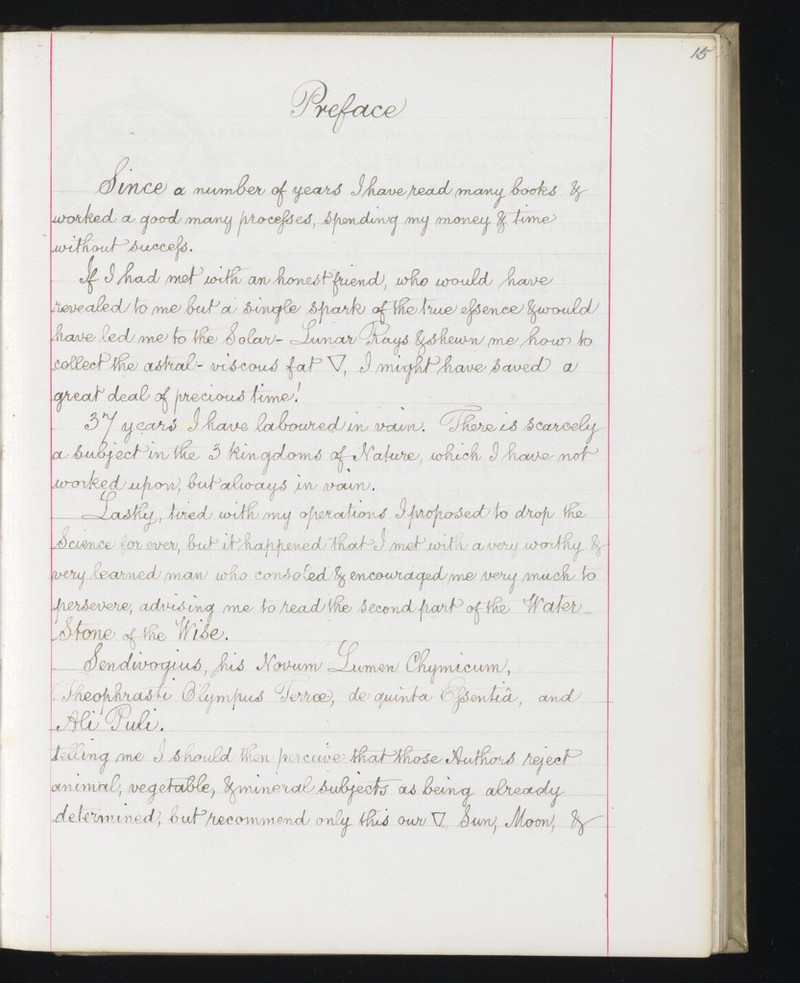 15
Preface
Since a number of years I have read many books &
worked a good many proceſses, spending my money & time
without succeſs.
If I had met with an honest friend, who would have
revealed to me but a single spark of the true eſsence & would
have led me to the Solar - Lunar Rays & shewn me how to
collect the astral - viscous fat ▽, I might have saved a
great deal of precious time!
37 years I have laboured in vain. There is scarcely
a subject in the 3 kingdoms of Nature, which I have not
worked upon, but always in vain.
Lastly, tired with my operations I proposed to drop the
Science for ever, but it happened that I met with a very worthy &
very learned man who consoled & encouraged me very much to
persevere, advising me to read the second part of the Water
Stone of the Wise.
Sendivogius, his Novum Lumen Chymicum,
Theophrasti Olympus Terræ, de quinta Eſsentiâ, and
Ali Puli.
telling me I should then perceive that those Authors reject
animal, vegetable, & mineral subjects as being already
determined, but recommend only this our ▽, Sun, Moon, &